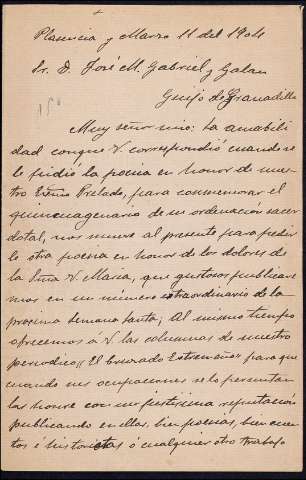 Plasencia y Marzo 11 del 1904
Sr. D. José M. Gabriel y Galan
Guijo de Granadilla
15º
Muy señor mio: La amabili
dad conque V. correspondió cuando se
le pidió la poesia en honor de nues
tro Exmo Prelado, para conmemorar el
quincuagenario de su ordenación sacer
dotal, nos mueve al presente para pedir
le otra poesia en honor de los dolores de
la Sma V. Maria, que gustosos publicare
mos en un número extraordinario de la
proxima semana santa; Al mismo tiempo
ofrecemos á V. las columnas de nuestro
periodico "El Cruzado Extremeño" para que
cuando sus ocupaciones se lo permitan
las honre con su justisima reputación
publicando en ellas, bien poesias, bien cuen
tos é historietas ó cualquier otro trabajo